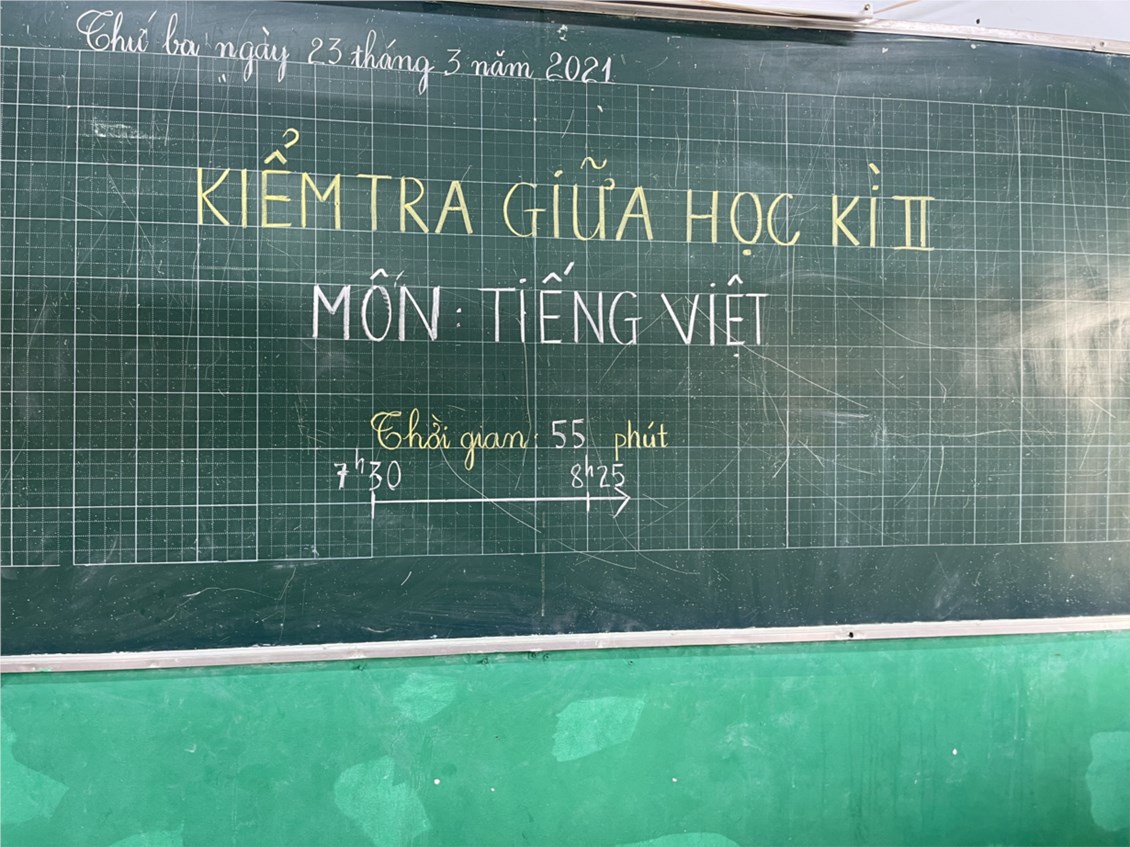 Thứ ba ngày 23 tháng 3 năm 2021
KIỂM TRA GIỮA HỌC KÌ II
MÔN: TIẾNG VIỆT
Thời gian: 55 phút
7h30 8h25